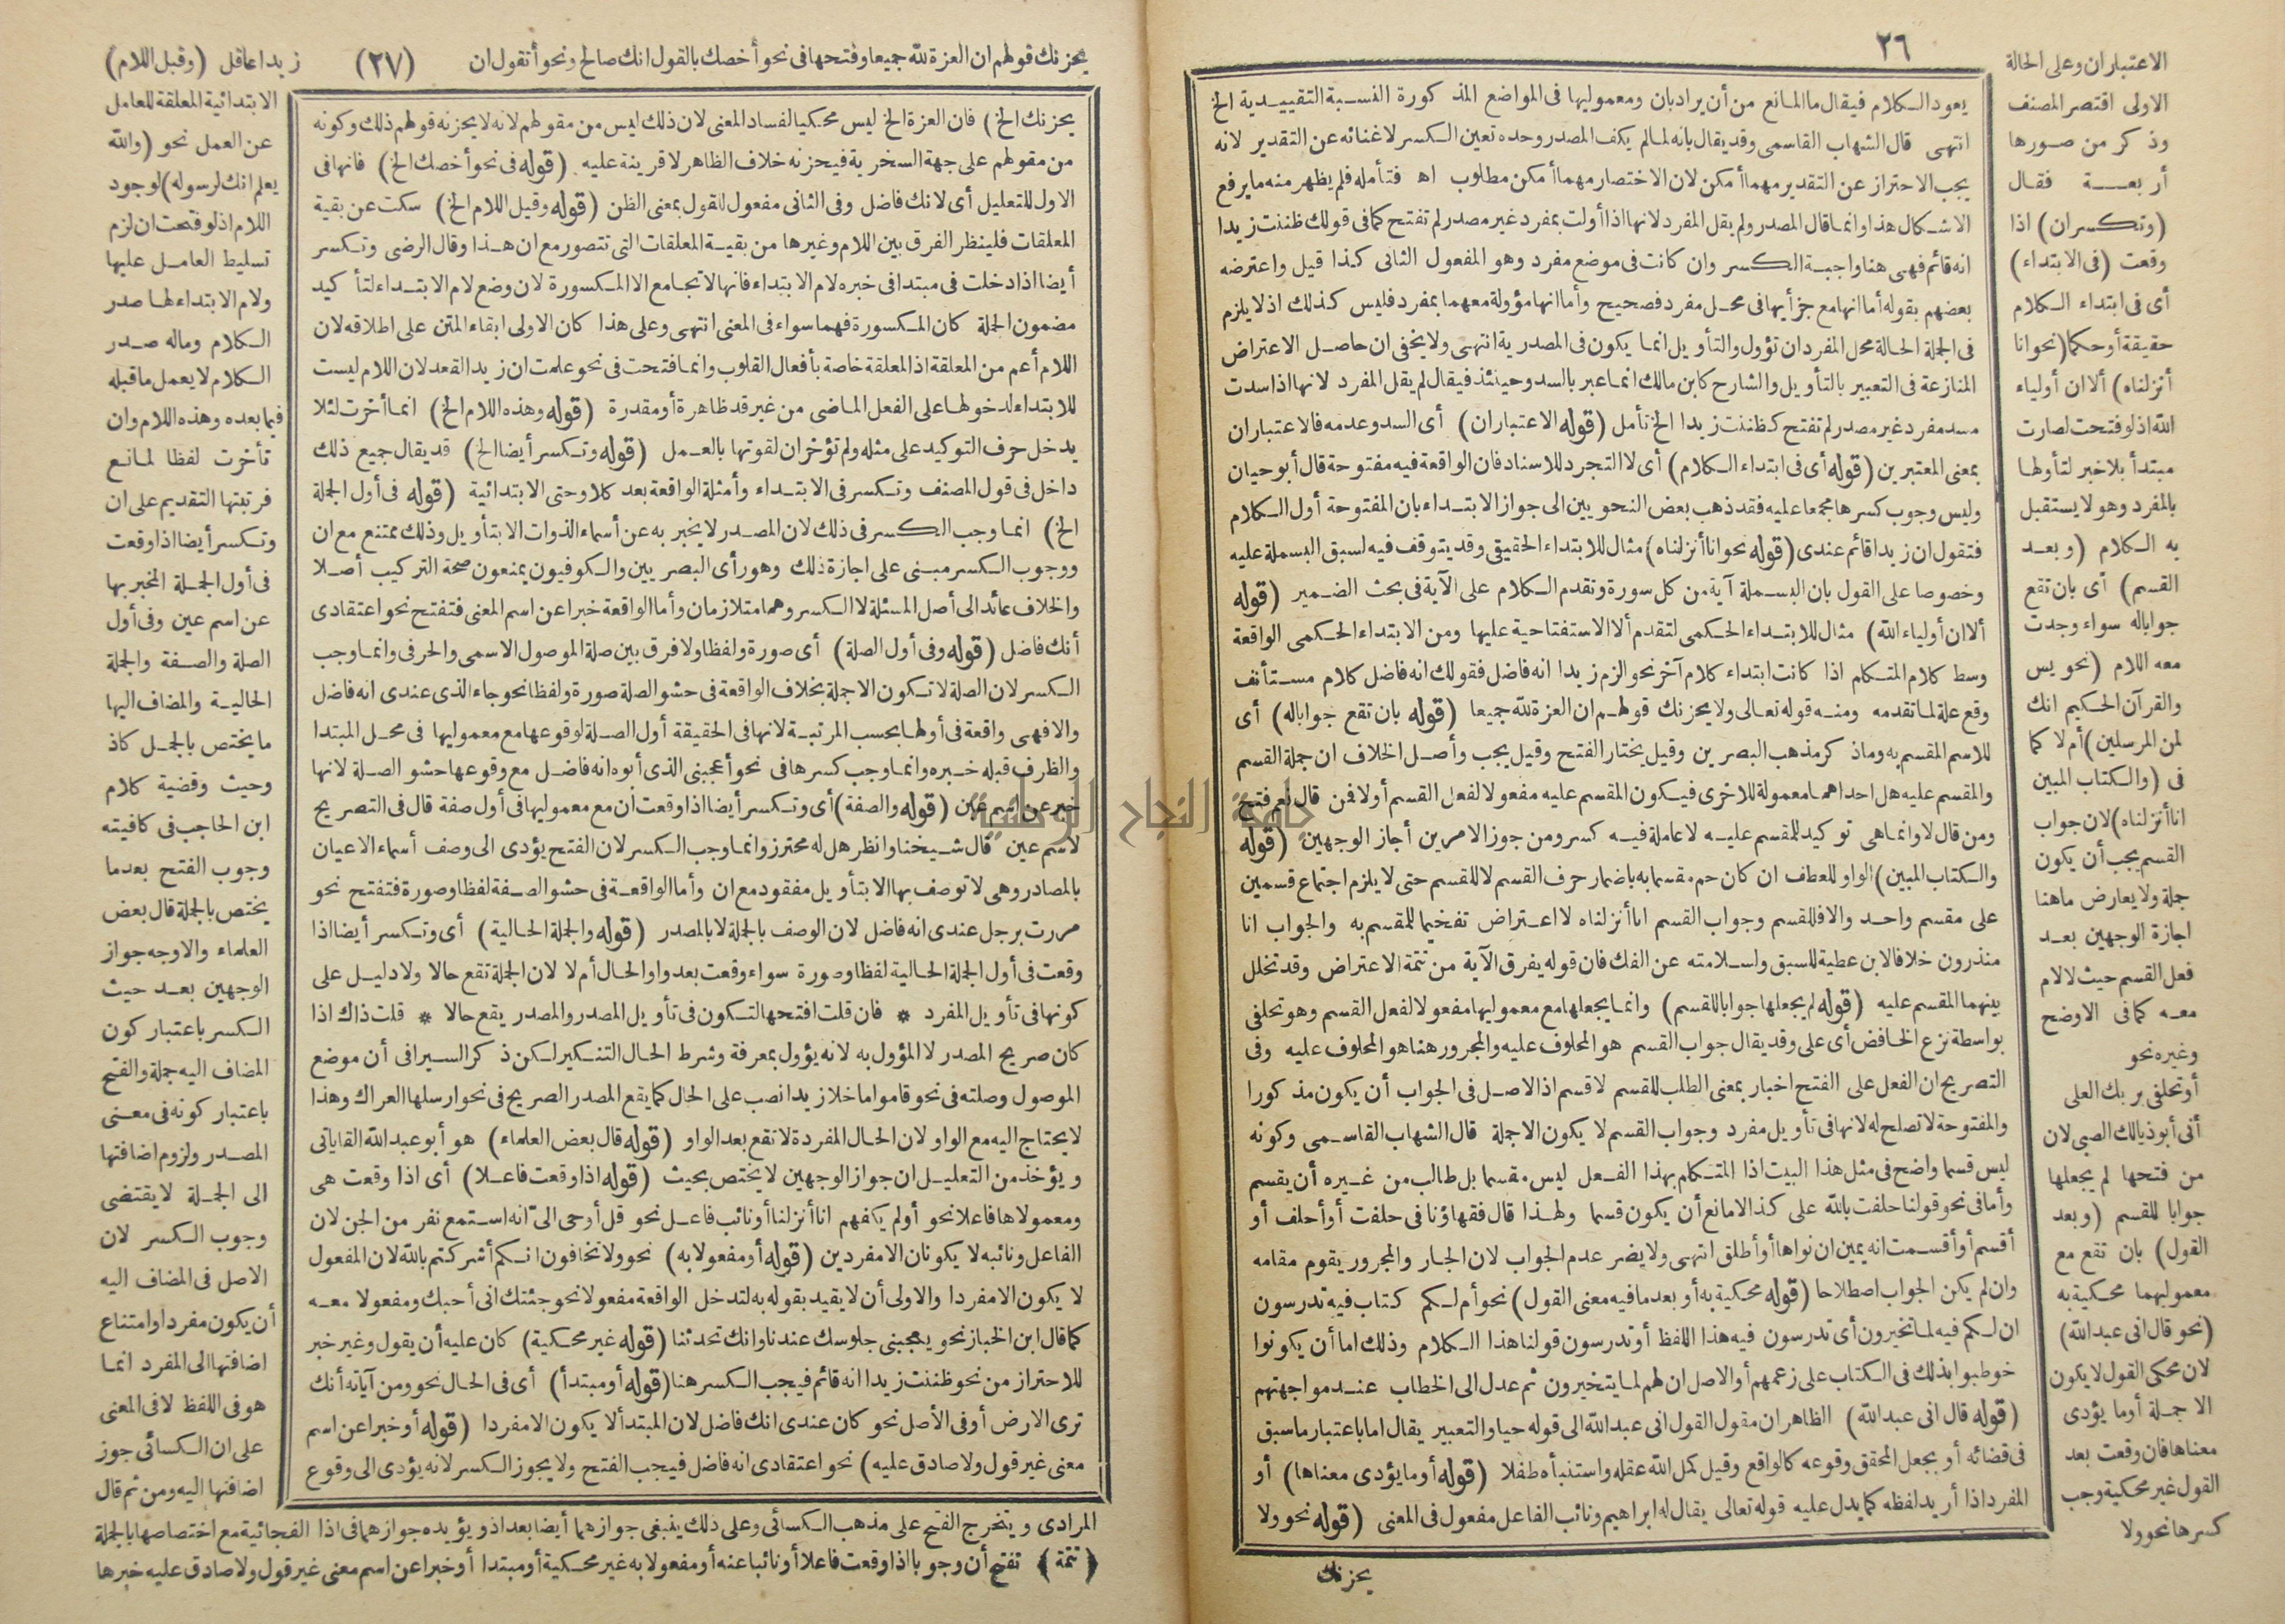 ٢٦
الاعتباران وعلى الحالة
الاولى اقتصر المصنف
وذكر من صورها
أربعة فقال
(وتكسران) اذا
وقعت (فى الابتداء)
أى فى ابتداء الكلام
حقيقة أو حكما (نحو انا
أنزلناه) ألا ان أولياء
الله اذ لو فتحت لصارت
مبتدأ بلا خبر لتأولها
بالمفرد وهو لا يستقبل
به الكلام (وبعد
القسم) أى بان تقع
جوابا له سواء وجدت
معه اللام (نحو يس
والقرآن الحكيم انك
لمن المرسلين) أم لا كما
فى (والكتاب المبين
انا أنزلناه) لان جواب
القسم يجب أن يكون
جملة ولا يعارض ما هنا
اجازة الوجهين بعد
فعل القسم حيث لا لام
معه كما فى الاوضح
وغيره نحو
أو تحلفى بربك العلى
أنى أبو ذيالك الصبى لان
من فتحها لم يجعلها
جوابا للقسم (وبعد
القول) بان تقع مع
معموليهما محكية به
(نحو قال انى عبد الله)
لان محكى القول لا يكون
الا جملة أو ما يؤدى
معناها فان وقعت بعد
القول غير محكية وجب
كسرها نحو ولا
يعود الكلام فيقال ما المانع من أن يراد بان ومعموليها فى المواضع المذكورة النسبة التقييدية الخ
انتهى قال الشهاب القاسمى وقد يقال بانه لما لم يكف المصدر وحده تعين الكسر لاغنائه عن التقدير لانه
يجب الاحتراز عن التقدير مهما أمكن لان الاختصار مهما أمكن مطلوب اه فتأمله فلم يظهر منه ما يرفع
الاشكال هذا وانما قال المصدر ولم يقل المفرد لانها اذا أولت بمفرد غير مصدر لم تفتح كما فى قولك ظننت زيدا
انه قائم فهى هنا واجبة الكسر وان كانت فى موضع مفرد وهو المفعول الثانى كذا قيل واعترضه
بعضهم بقوله أما انها مع جزأيها فى محل مفرد فصحيح وأما انها مؤولة معهما بمفرد فليس كذلك اذ لا يلزم
فى الجملة الحالة محل المفرد ان تؤول والتأويل انما يكون فى المصدرية انتهى ولا يخفى ان حاصل الاعتراض
المنازعة فى التعبير بالتأويل والشارح كابن مالك انما عبر بالسد وحينئذ فيقال لم يقل المفرد لانها اذا سدت
مسد مفرد غير مصدر لم تفتح كظننت زيدا الخ تأمل (قوله الاعتباران) أى السد وعدمه فالاعتباران
بمعنى المعتبرين (قوله أى فى ابتداء الكلام) أى لا التجرد للاسناد فان الواقعة فيه مفتوحة قال أبو حيان
وليس وجوب كسرها مجمعا عليه فقد ذهب بعض النحويين الى جواز الابتداء بان المفتوحة أول الكلام
فتقول ان زيدا قائم عندى (قوله نحو انا أنزلناه) مثال للابتداء الحقيقى وقد يتوقف فيه لسبق البسملة عليه
وخصوصا على القول بان البسملة آية من كل سورة وتقدم الكلام على الآية فى بحث الضمير (قوله
ألا ان أولياء الله) مثال للابتداء الحكمى لتقدم ألا الاستفتاحية عليها ومن الابتداء الحكمى الواقعة
وسط كلام المتكلم اذا كانت ابتداء كلام آخر نحو الزم زيدا انه فاضل فقولك انه فاضل كلام مستأنف
وقع علة لما تقدمه ومنه قوله تعالى ولا يحزنك قولهم ان العزة لله جميعا (قوله بان تقع جوابا له) أى
للاسم المقسم به وما ذكر مذهب البصريين وقيل يختار الفتح وقيل يجب وأصل الخلاف ان جملة القسم
والمقسم عليه هل احداهما معمولة للاخرى فيكون المقسم عليه مفعولا لفعل القسم أو لا فمن قال نعم فتح
ومن قال لا وانما هى توكيد للمقسم عليه لا عاملة فيه كسر ومن جوز الامرين أجاز الوجهين (قوله
والكتاب المبين) الواو للعطف ان كان حم مقسما به باضمار حرف القسم لا للقسم حتى لا يلزم اجتماع قسمين
على مقسم واحد والا فللقسم وجواب القسم انا أنزلناه لا اعتراض تفخيما للمقسم به والجواب انا
منذرون خلافا لابن عطية للسبق ولسلامته عن الفك فان قوله يفرق الآية من تتمة الاعتراض وقد تخلل
بينهما المقسم عليه (قوله لم يجعلها جوابا للقسم) وانما يجعلها مع معموليها مفعولا لفعل القسم وهو تحلفى
بواسطة نزع الخافض أى على وقد يقال جواب القسم هو المحلوف عليه والمجرور هنا هو المحلوف عليه وفى
التصريح ان الفعل على الفتح اخبار بمعنى الطلب للقسم لا قسم اذ الاصل فى الجواب أن يكون مذكورا
والمفتوحة لا تصلح له لانها فى تأويل مفرد وجواب القسم لا يكون الا جملة قال الشهاب القاسمى وكونه
ليس قسما واضح فى مثل هذا البيت اذا المتكلم بهذا الفعل ليس مقسما بل طالب من غيره أن يقسم
وأما فى نحو قولنا حلفت بالله على كذا لا مانع أن يكون قسما ولهذا قال فقهاؤنا فى حلفت أو أحلف أو
أقسم أو أقسمت انه يمين ان نواها أو أطلق انتهى ولا يضر عدم الجواب لان الجار والمجرور يقوم مقامه
وان لم يكن الجواب اصطلاحا (قوله محكية به أو بعد ما فيه معنى القول) نحو أم لكم كتاب فيه تدرسون
ان لكم فيه لما تخيرون أى تدرسون فيه هذا اللفظ أو تدرسون قولنا هذا الكلام وذلك اما أن يكونوا
خوطبوا بذلك فى الكتاب على زعمهم أو الاصل ان لهم لما يتخيرون ثم عدل الى الخطاب عند مواجهتهم
(قوله قال انى عبد الله) الظاهر ان مقول القول انى عبد الله الى قوله حيا والتعبير يقال اما باعتبار ما سبق
فى قضائه أو بجعل المحقق وقوعه كالواقع وقيل كمل الله عقله واستنبأه طفلا (قوله أو ما يؤدى معناها) أو
المفرد اذا أريد لفظه كما يدل عليه قوله تعالى يقال له ابراهيم ونائب الفاعل مفعول فى المعنى (قوله نحو ولا
يحزنك
يحزنك قولهم ان العزة لله جميعا وفتحها فى نحو أخصك بالقول انك صالح ونحو أتقول ان (٢٧) زيدا عاقل (وقبل اللام)
الابتدائية المعلقة للعامل
عن العمل نحو (والله
يعلم انك لرسوله) لوجود
اللام اذ لو فتحت ان لزم
تسليط العامل عليها
ولام الابتداء لها صدر
الكلام وما له صدر
الكلام لا يعمل ما قبله
فيما بعده وهذه اللام وان
تأخرت لفظا لمانع
فرتبتها التقديم على ان
وتكسر أيضا اذا وقعت
فى أول الجملة المخبر بها
عن اسم عين وفى أول
الصلة والصفة والجملة
الحالية والمضاف اليها
ما يختص بالجمل كاذ
وحيث وقضية كلام
ابن الحاجب فى كافيته
وجوب الفتح بعدما
يختص بالجملة قال بعض
العلماء والاوجه جواز
الوجهين بعد حيث
الكسر باعتبار كون
المضاف اليه جملة والفتح
باعتبار كونه فى معنى
المصدر ولزوم اضافتها
الى الجملة لا يقتضى
وجوب الكسر لان
الاصل فى المضاف اليه
أن يكون مفردا وامتناع
اضافتها الى المفرد انما
هو فى اللفظ لا فى المعنى
على ان الكسائى جوز
اضافتها اليه ومن ثم قال
يحزنك الخ) فان العزة الخ ليس محكيا لفساد المعنى لان ذلك ليس من مقولهم لانه لا يحزنه قولهم ذلك وكونه
من مقولهم على جهة السخرية فيحزنه خلاف الظاهر لا قرينة عليه (قوله فى نحو أخصك الخ) فانها فى
الاول للتعليل أى لانك فاضل وفى الثانى مفعول للقول بمعنى الظن (قوله وقبل اللام الخ) سكت عن بقية
المعلقات فلينظر الفرق بين اللام وغيرها من بقية المعلقات التى تتصور مع ان هذا وقال الرضى وتكسر
أيضا اذا دخلت فى مبتدا فى خبره لام الابتداء فانها لا تجامع الا المكسورة لان وضع لام الابتداء لتأكيد
مضمون الجملة كان المكسورة فهما سواء فى المعنى انتهى وعلى هذا كان الاولى ابقاء المتن على اطلاقه لان
اللام أعم من المعلقة اذ المعلقة خاصة بأفعال القلوب وانما فتحت فى نحو علمت ان زيدا لقد قعد لان اللام ليست
للابتداء لدخولها على الفعل الماضى من غير قد ظاهرة أو مقدرة (قوله وهذه اللام الخ) انما أخرت لئلا
يدخل حرف التوكيد على مثله ولم تؤخر ان لقوتها بالعمل (قوله وتكسر أيضا الخ) قد يقال جميع ذلك
داخل فى قول المصنف وتكسر فى الابتداء وأمثلة الواقعة بعد كلا وحتى الابتدائية (قوله فى أول الجملة
الخ) انما وجب الكسر فى ذلك لان المصدر لا يخبر به عن أسماء الذوات الا بتأويل وذلك ممتنع مع ان
ووجوب الكسر مبنى على اجازة ذلك وهو رأى البصريين والكوفيون يمنعون صحة التركيب أصلا
والخلاف عائد الى أصل المسئلة لا الكسر وهما متلازمان وأما الواقعة خبرا عن اسم المعنى فتفتح نحو اعتقادى
أنك فاضل (قوله وفى أول الصلة) أى صورة ولفظا ولا فرق بين صلة الموصول الاسمى والحرفى وانما وجب
الكسر لان الصلة لا تكون الا جملة بخلاف الواقعة فى حشو الصلة صورة ولفظا نحو جاء الذى عندى انه فاضل
والا فهى واقعة فى أولها بحسب المرتبة لانها فى الحقيقة أول الصلة لوقوعها مع معموليها فى محل المبتدا
والظرف قبله خبره وانما وجب كسرها فى نحو أعجبنى الذى أبوه انه فاضل مع وقوعها حشو الصلة لانها
خبر عن اسم عين (قوله والصفة) أى وتكسر أيضا اذا وقعت أن مع معموليها فى أول صفة قال فى التصريح
لاسم عين قال شيخنا وانظر هل له محترز وانما وجب الكسر لان الفتح يؤدى الى وصف أسماء الاعيان
بالمصادر وهى لا توصف بها الا بتأويل مفقود مع ان وأما الواقعة فى حشو الصفة لفظا وصورة فتفتح نحو
مررت برجل عندى انه فاضل لان الوصف بالجملة لا بالمصدر (قوله والجملة الحالية) أى وتكسر أيضا اذا
وقعت فى أول الجملة الحالية لفظا وصورة سواء وقعت بعد واو الحال أم لا لان الجملة تقع حالا ولا دليل على
كونها فى تأويل المفرد * فان قلت افتحها لتكون فى تأويل المصدر والمصدر يقع حالا * قلت ذاك اذا
كان صريح المصدر لا المؤول به لانه يؤول بمعرفة وشرط الحال التنكير لكن ذكر السيرافى أن موضع
الموصول وصلته فى نحو قاموا ما خلا زيدا نصب على الحال كما يقع المصدر الصريح فى نحو ارسلها العراك وهذا
لا يحتاج اليه مع الواو لان الحال المفردة لا تقع بعد الواو (قوله قال بعض العلماء) هو أبو عبد الله القاياتى
ويؤخذ من التعليل ان جواز الوجهين لا يختص بحيث (قوله اذا وقعت فاعلا) أى اذا وقعت هى
ومعمولاها فاعلا نحو أولم يكفهم انا أنزلنا أو نائب فاعل نحو قل أوحى الىّ أنه استمع نفر من الجن لان
الفاعل ونائبه لا يكونان الا مفردين (قوله أو مفعولا به) نحو ولا تخافون انكم أشركتم بالله لان المفعول
لا يكون الا مفردا والاولى أن لا يقيد بقوله به لتدخل الواقعة مفعولا نحو جئتك انى أحبك ومفعولا معه
كما قال ابن الخباز نحو يعجبنى جلوسك عندنا وانك تحدثنا (قوله غير محكية) كان عليه أن يقول وغير خبر
للاحتراز من نحو ظننت زيدا انه قائم فيجب الكسر هنا (قوله أو مبتدأ) أى فى الحال نحو ومن آياته أنك
ترى الارض أو فى الأصل نحو كان عندى انك فاضل لان المبتدأ لا يكون الا مفردا (قوله أو خبرا عن اسم
معنى غير قول ولا صادق عليه) نحو اعتقادى انه فاضل فيجب الفتح ولا يجوز الكسر لانه يؤدى الى وقوع
المرادى ويتخرج الفتح على مذهب الكسائى وعلى ذلك ينبغى جوازهما أيضا بعد اذ ويؤيده جوازهما فى اذا الفجائية مع اختصاصها بالجملة
(تتمة) تفتح أن وجوبا اذا وقعت فاعلا أو نائبا عنه أو مفعولا به غير محكية أو مبتدا أو خبرا عن اسم معنى غير قول ولا صادق عليه خبرها
جامعة النجاح الوطنية